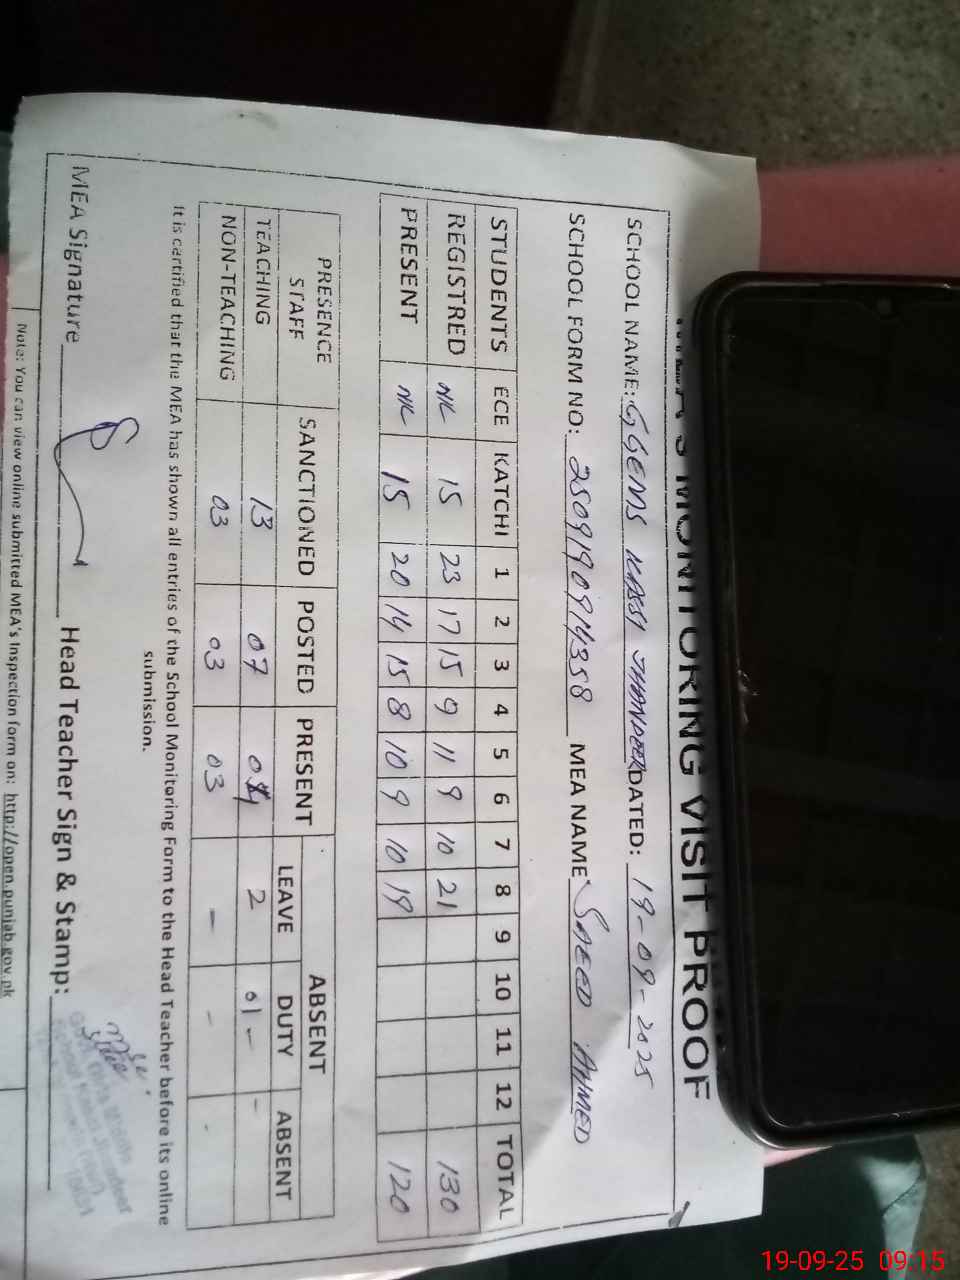 MONITORING VISIT PROOF
SCHOOL NAME: GGEMS KASSI JHANDEER DATED: 19-09-2025
SCHOOL FORM NO: 2509190914358 MEA NAME SAEED AHMED
STUDENTS ECE KATCHI 1 2 3 4 5 6 7 8 9 10 11 12 TOTAL
REGISTRED NIL 15 23 17 15 9 11 9 10 21 130
PRESENT NIL 15 20 14 15 8 10 9 10 19 120
PRESENCE STAFF SANCTIONED POSTED PRESENT ABSENT
LEAVE DUTY ABSENT
TEACHING 13 07 04 2 01 - -
NON-TEACHING 03 03 03 - - -
It is certified that the MEA has shown all entries of the School Monitoring Form to the Head Teacher before its online
submission.
MEA Signature Head Teacher Sign & Stamp:
Note: You can view online submitted MEA's Inspection form on: http://open.punjab.gov.pk
19-09-25 09:15